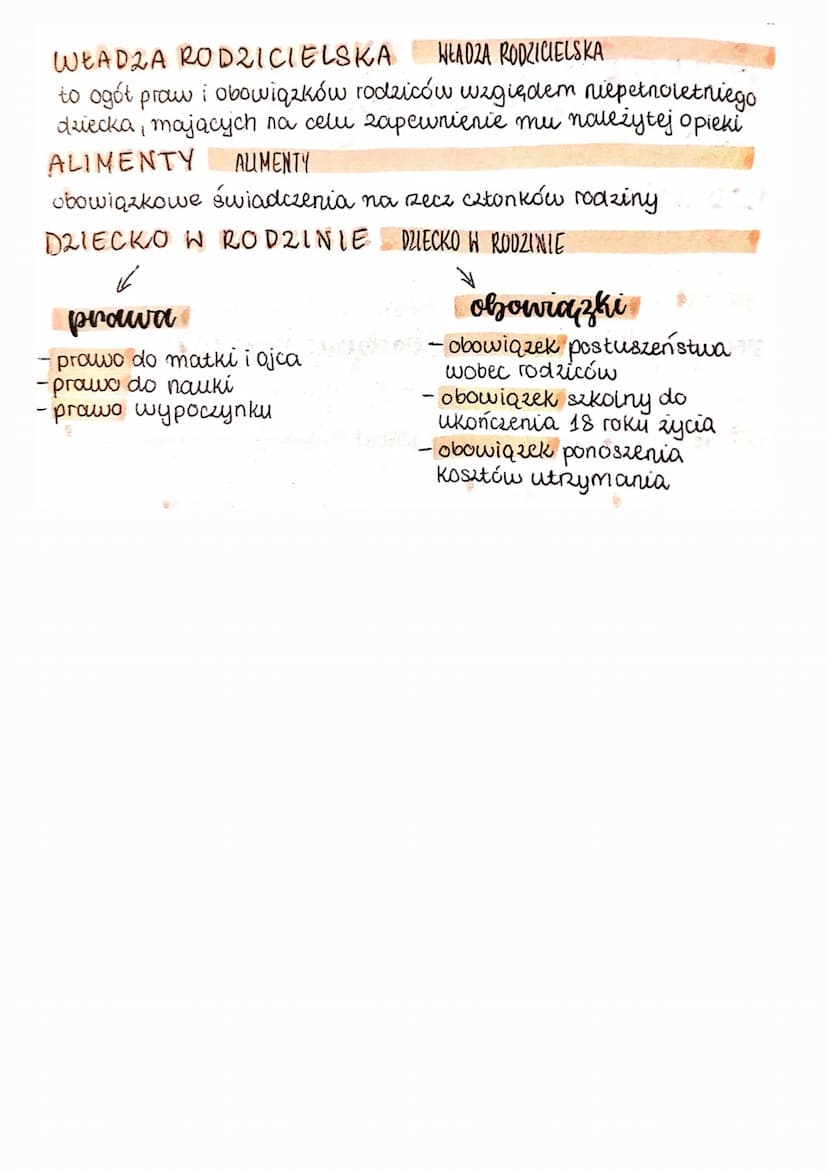 WŁADZA RODZICIELSKA WŁADZA RODZICIELSKA
to ogół praw i obowiązków rodziców względem niepełnoletniego
dziecka, mających na celu zapewnienie mu należytej opieki
ALIMENTY ALIMENTY
obowiązkowe świadczenia na rzecz członków rodziny
DZIECKO W RODZINIE DZIECKO W RODZINIE
prawa
- prawo do matki i ojca
- prawo do nauki
- prawo wypoczynku
obowiązki
- obowiązek posłuszeństwa
wobec rodziców
- obowiązek szkolny do
ukończenia 18 roku życia
- obowiązek ponoszenia
kosztów utrzymania